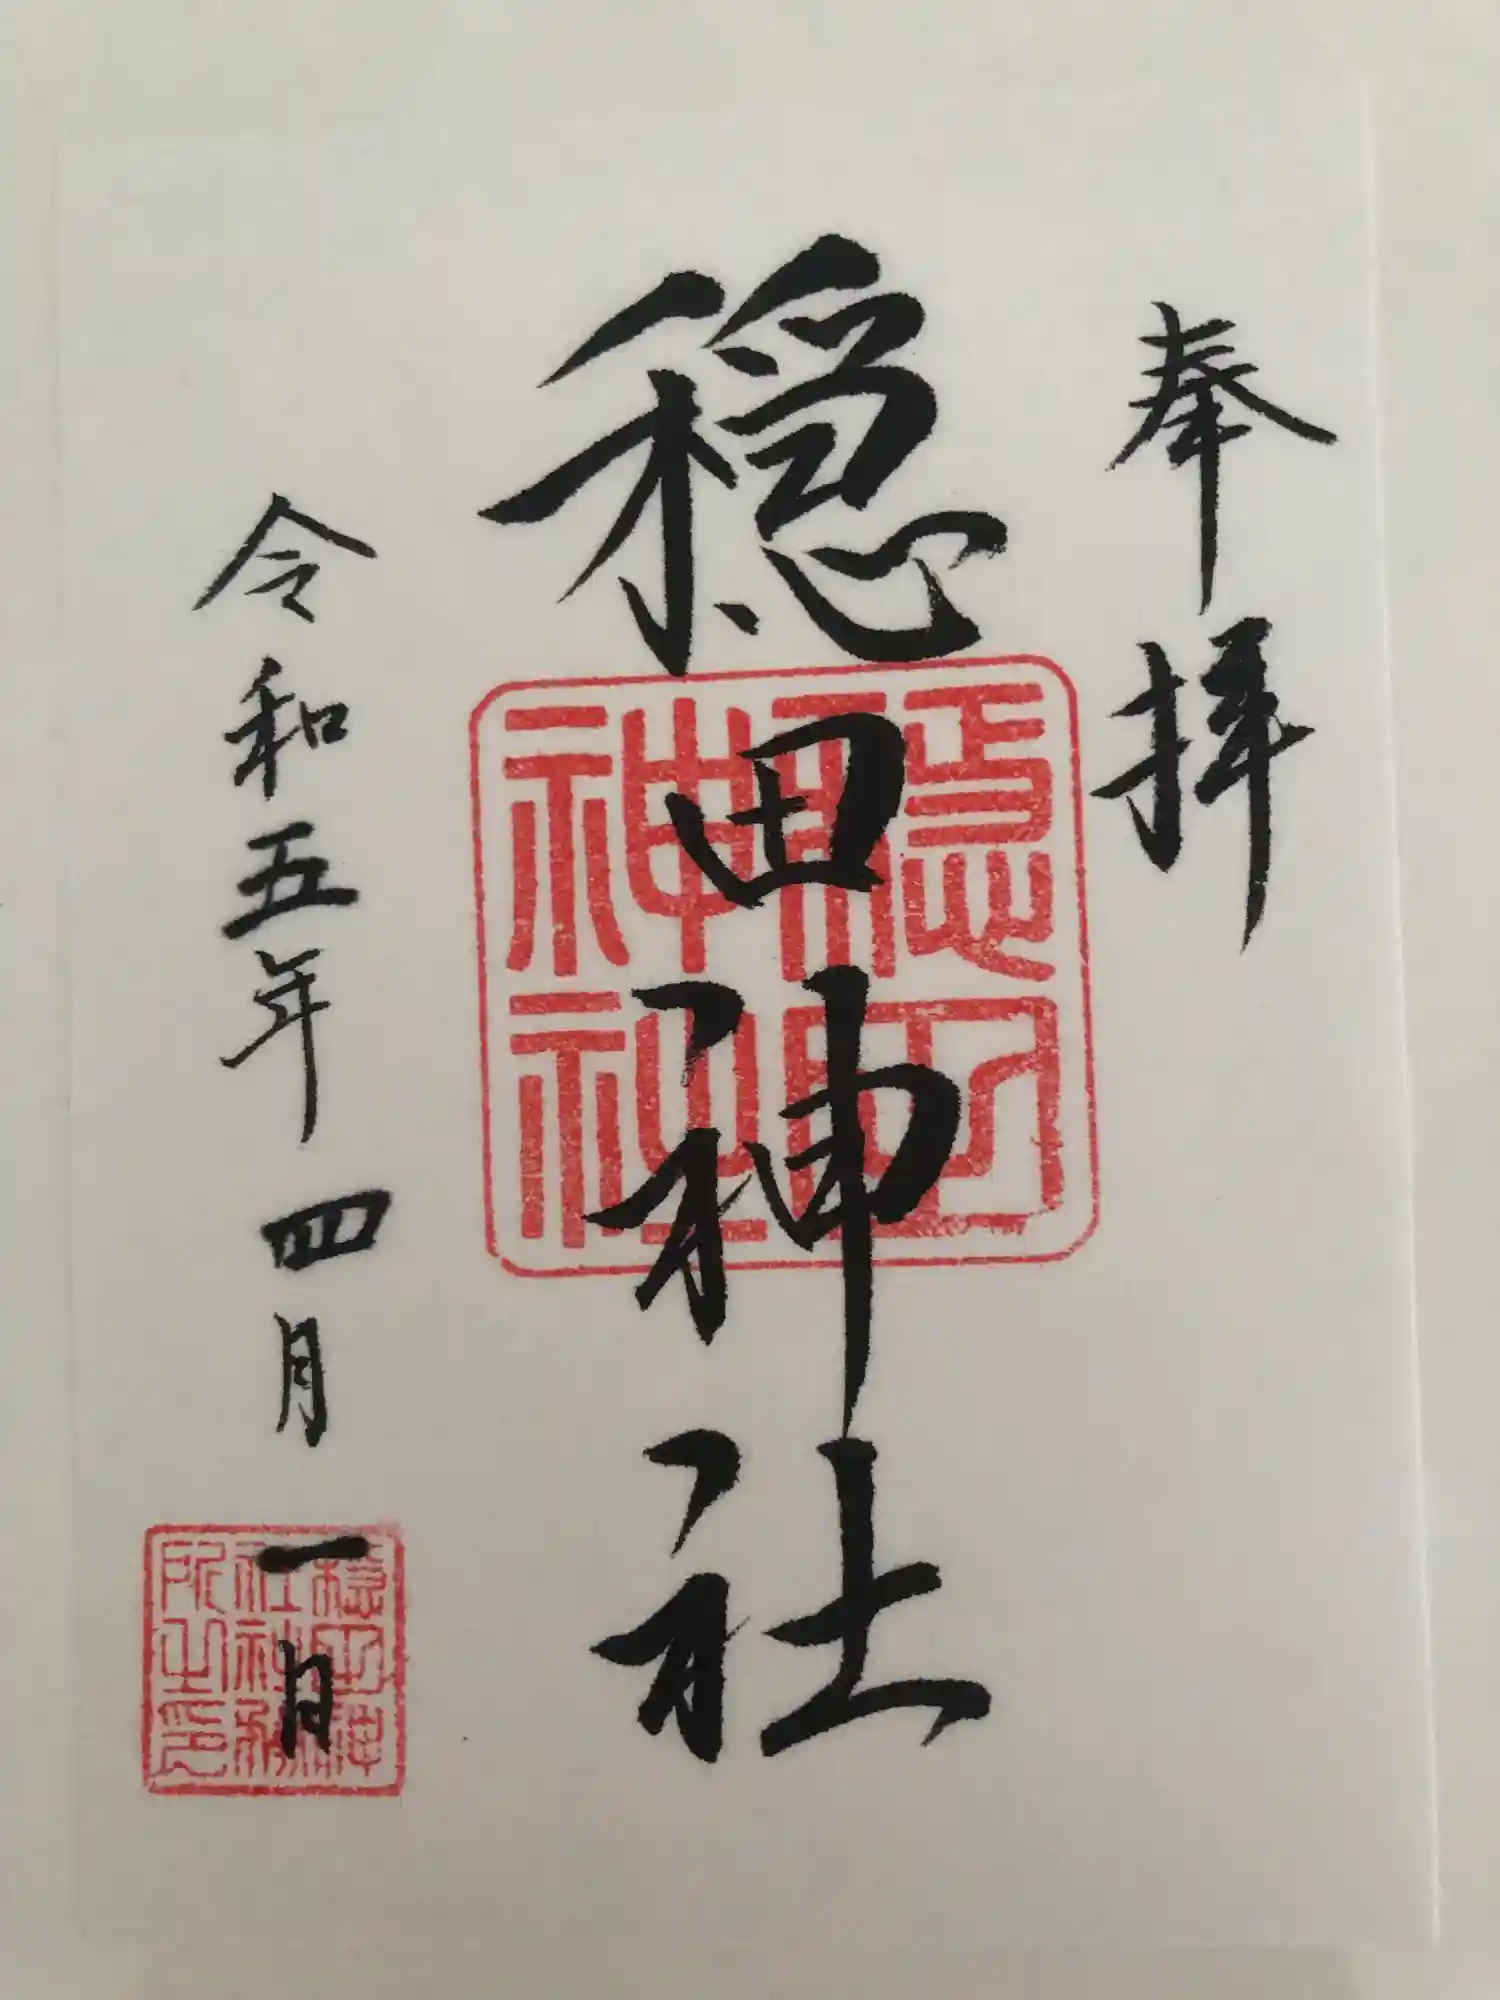 奉拝
穏田神社
穏田
神社
令和五年 四月 一日
穏田神
社社務
所之印